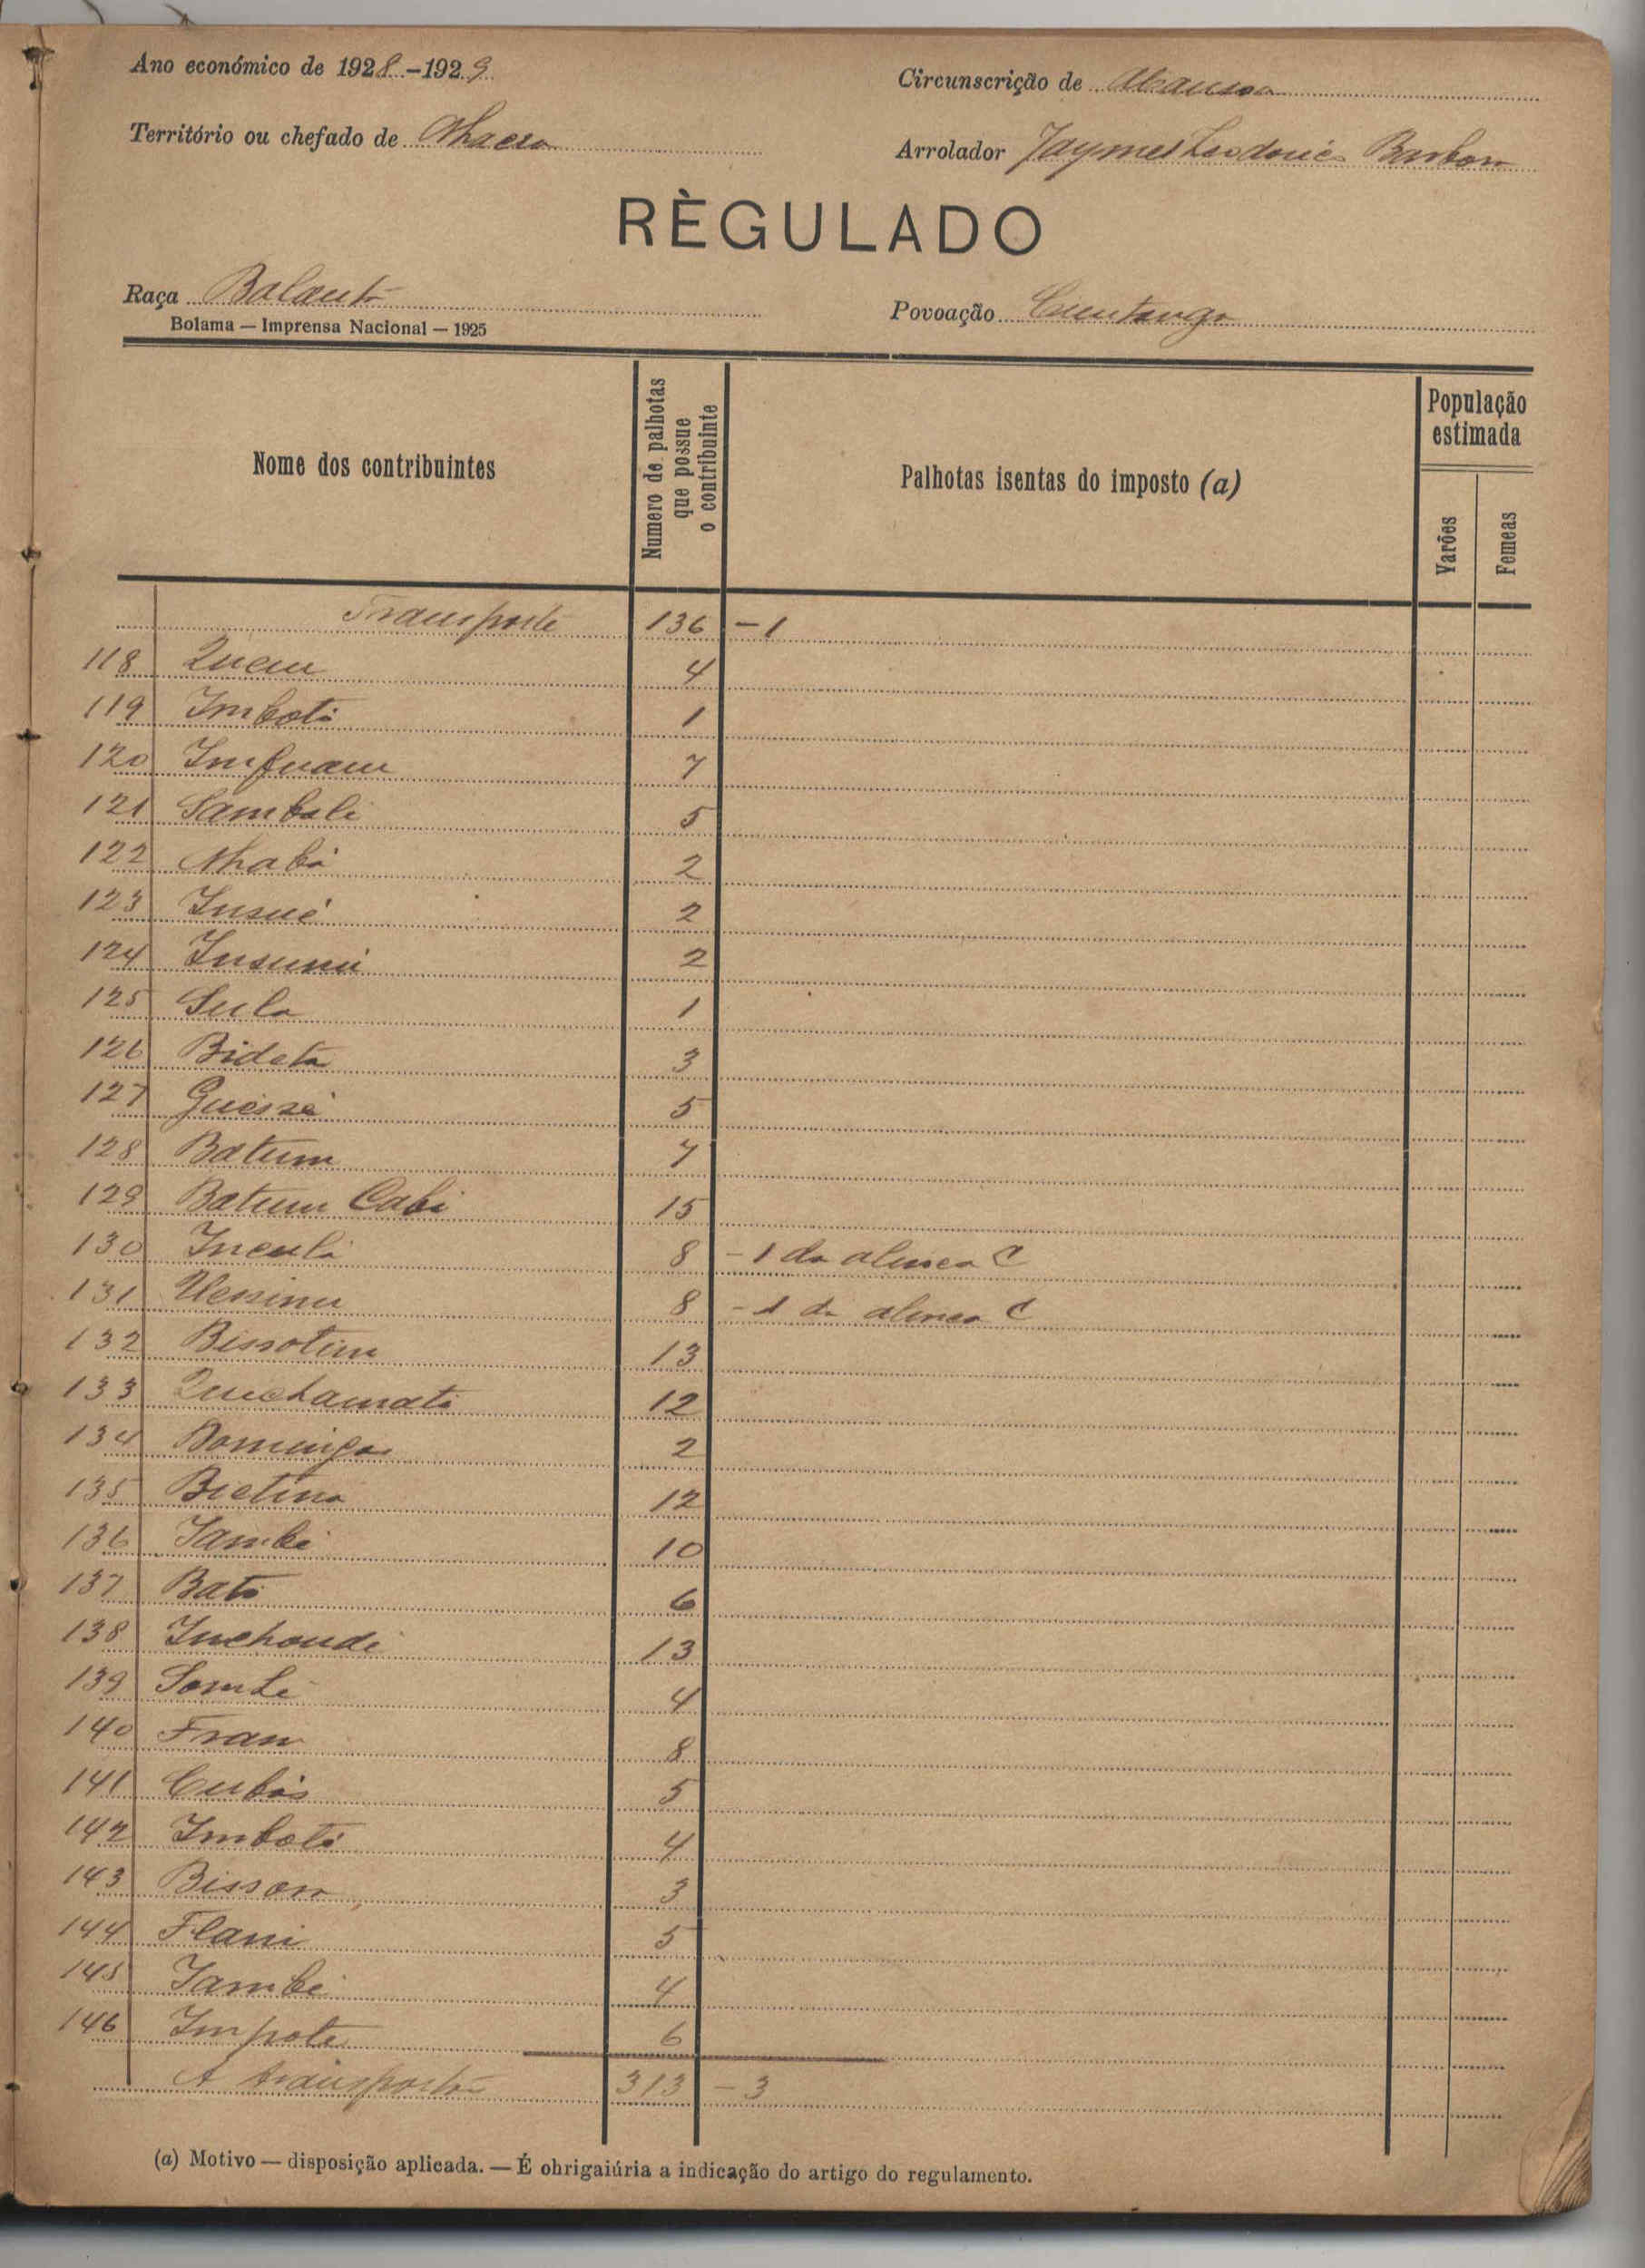 Ano económico de 1928-1929
Circunscrição de
Território ou chefado de Nhacra
Arrolador Jaymes Barbosa
RÈGULADO
Raça Balanta
Bolama — Imprensa Nacional — 1925
Povoação Cuntanga
Nome dos contribuintes
Numero de palhotas que possue o contribuinte
Palhotas isentas do imposto (a)
População estimada
Varões
Femeas
Transporte 136 -1
118 Quem 4
119 Imboti 1
120 Imfuam 7
121 Sambali 5
122 Nhabá 2
123 Insué 2
124 Insumú 2
125 Sula 1
126 Bideta 3
127 Guissé 5
128 Batum 7
129 Batum Cabi 15
130 Inculi 8 - 1 da alinea C
131 8 - 1 da alinea C
132 Bissotim 13
133 Quuchamati 12
134 Domingos 2
135 Bietina 12
136 Tambi 10
137 Bati 6
138 Inchoudi 13
139 Sambé 4
140 Fran 8
141 Cubás 5
142 Imboti 4
143 Bissam 3
144 Flani 5
145 Tambi 4
146 Impote 6
A transportar 313 - 3
(a) Motivo — disposição aplicada. — É ohrigaiúria a indicação do artigo do regulamento.